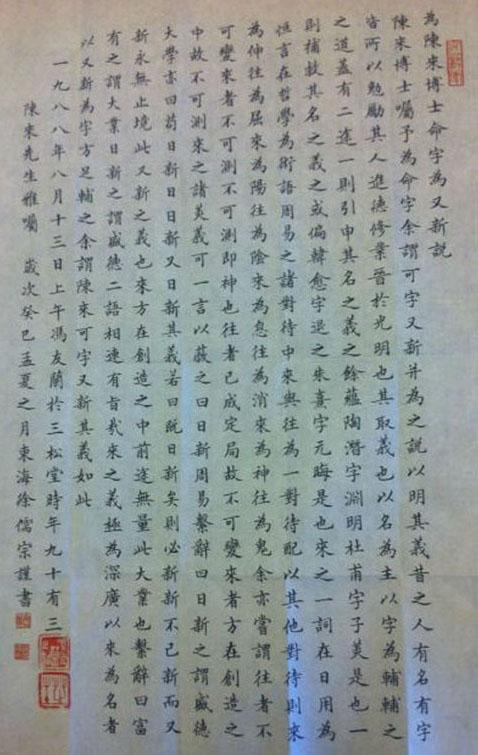 為陳來博士命字為又新説
陳來博士囑予為命字余謂可字又新并為之説以明其義昔之人有名有字
皆所以勉勵其人進德修業晉於光明也其取義也以名為主以字為輔輔之
之道蓋有二途一則引申其名之義之餘蘊陶潛字淵明杜甫字子美是也一
則補救其名之義之或偏韓愈字退之朱熹字元晦是也來之一詞在日用為
恒言在哲學為術語周易之諸對待中來與往為一對待配以其他對待則來
為伸往為屈來為陽往為陰來為息往為消來為神往為鬼余亦嘗謂往者不
可變來者不可測不可測即神也往者已成定局故不可變來者方在創造之
中故不可測來之諸美義可一言以蔽之曰日新周易繫辭曰日新之謂盛德
大學亦曰苟日新日日新又日新其義若曰既日新矣則必新新不已新而又
新永無止境此又新之義也來方在創造之中前途無量此大業也繫辭曰富
有之謂大業日新之謂盛德二語相連有旨哉來之義極為深廣以來為名者
以又新為字方足輔之余謂陳來可字又新其義如此
一九八八年八月十三日上午馮友蘭於三松堂時年九十有三
陳來先生雅囑 歲次癸巳孟夏之月東海徐儒宗謹書